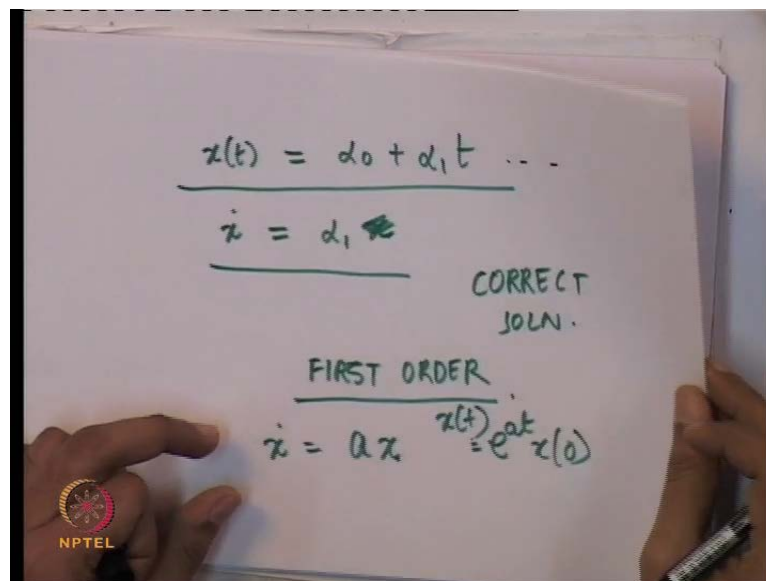 x(t) = α0 + α1 t ...
ẋ = α1
CORRECT
SOLN.
FIRST ORDER
ẋ = ax x(t) = e^{at} x(0)
NPTEL